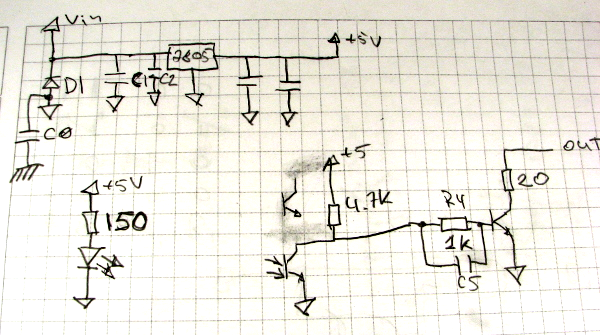 Vin
+5V
7805
D1
C1
C2
C0
+5V
150
+5
4.7K
R4
1K
C5
20
OUT